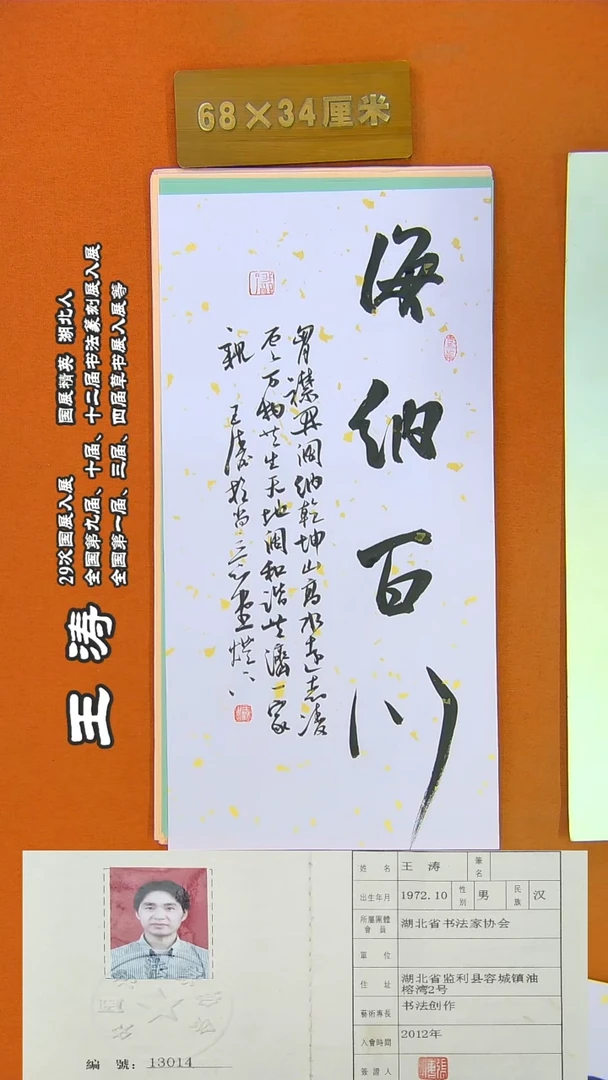 68×34厘米
海纳百川
胷襟典阔纳乾坤山高水远志凌
霄万物共生天地阔和谐共济一家
亲 王涛
王涛
29次国展入展 国展精英 湖北人
全国第九届、十届、十二届书法篆刻展入展
全国第一届、三届、四届草书展入展等
姓名 王涛 筆名
出生年月 1972.10 性别 男 民族 汉
所屬團體會員 湖北省书法家协会
單位
住址 湖北省监利县容城镇油榕湾2号
藝術專長 书法创作
入會時間 2012年
簽證人
編號: 13014